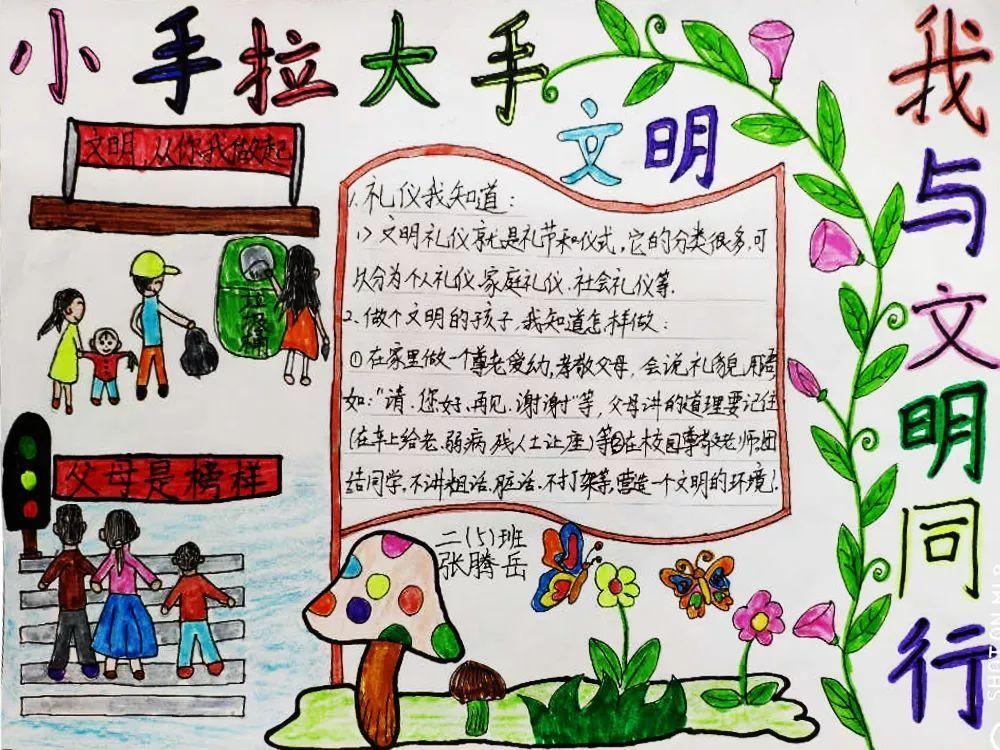 小手拉大手
我与文明同行
文明
文明,从你我做起
垃圾桶
父母是榜样
1.礼仪我知道:
1>文明礼仪就是礼节和仪式,它的分类很多,可
以分为个人礼仪、家庭礼仪、社会礼仪等.
2、做个文明的孩子,我知道怎样做:
①在家里做一个尊老爱幼,孝敬父母,会说礼貌用语
如:"请、您好、再见、谢谢"等,父母讲的道理要记住
(在车上给老、弱病、残人士让座)等②在校园尊敬老师,团
结同学,不讲粗话、脏话、不打架等,营造一个文明的环境!
二(5)班
张腾岳